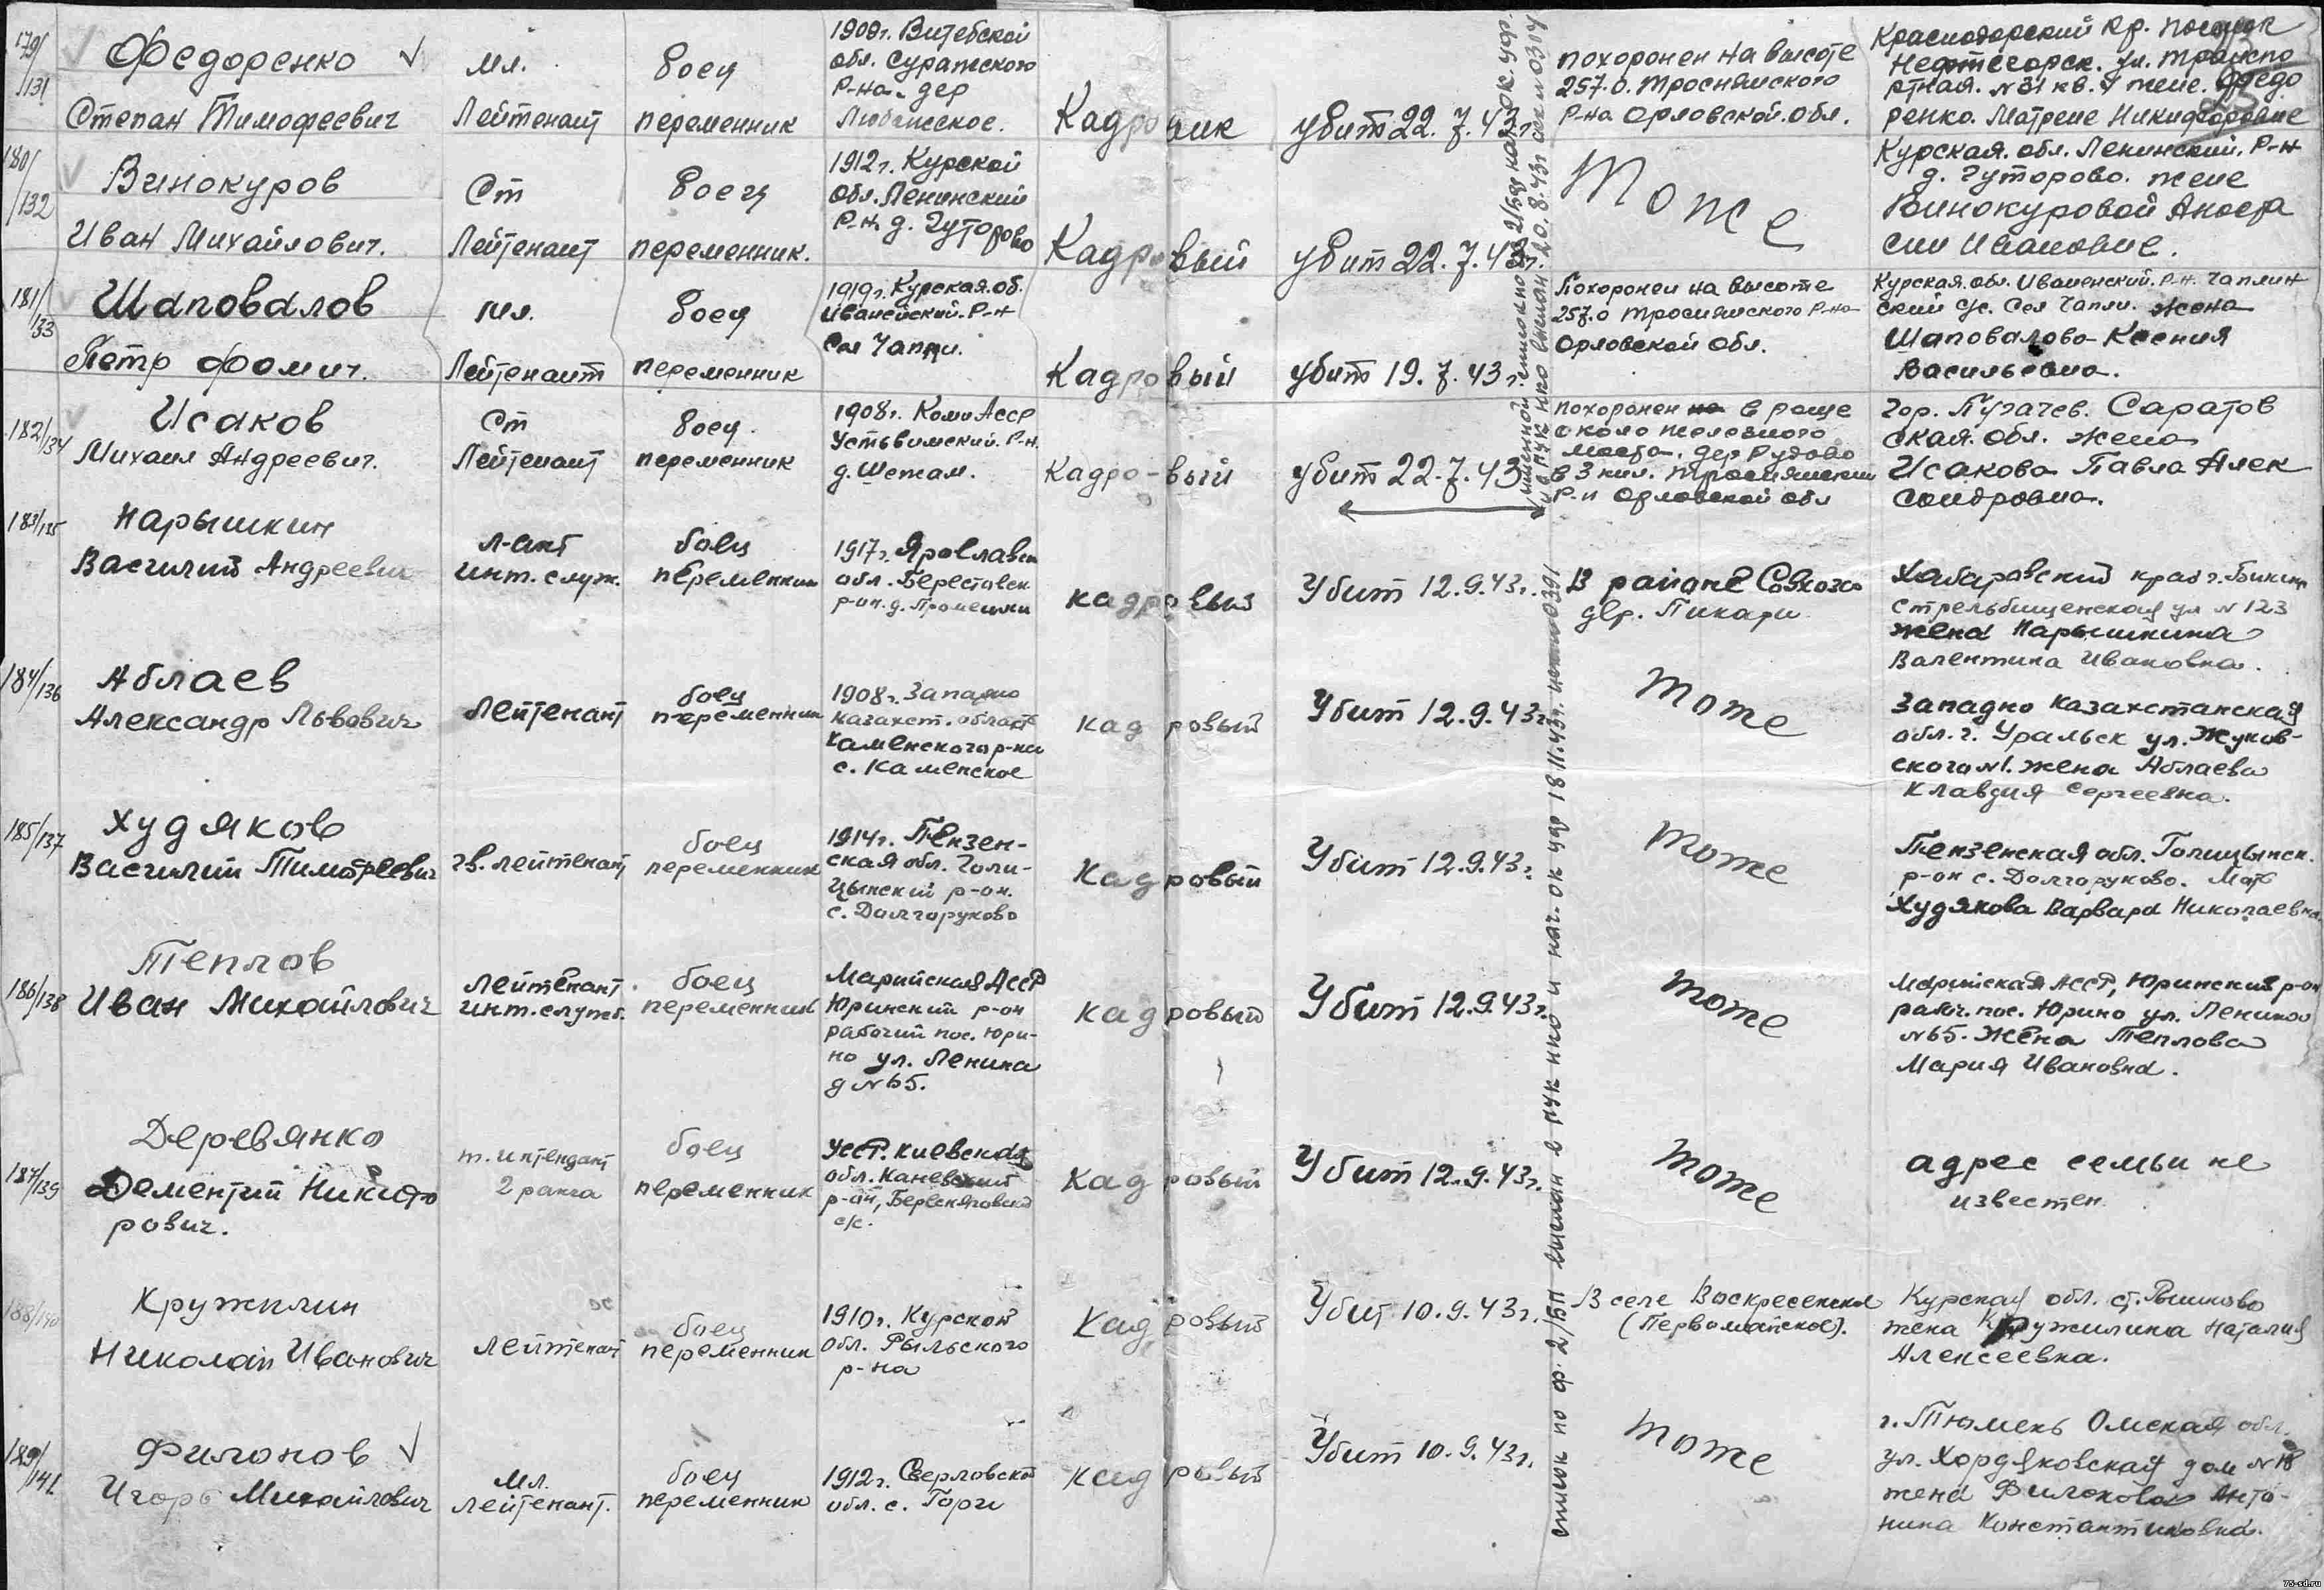 179/131
Федоренко
Степан Тимофеевич
мл.
Лейтенант
боец
переменник
1909г. Витебской
обл. Суражского
Р-на. дер
Кадровик
убит 22.7.43г.
похоронен на высоте
257.0. Троснянского
Р-на Орловской. Обл.
Краснодарский кр. поселок
Нефтегорск. ул. Транспо
ртная. №31 кв. 4 жене. Федо
ренко. Матрене Никифоровне
180/132
Винокуров
Иван Михайлович.
Ст
Лейтенант
боец
переменник.
1912г. Курской
обл. Ленинский
Р-н. д. Гуторово
Кадровый
убит 22.7.43г.
Тоже
Курская. обл. Ленинский. Р-н
д. Гуторово. жене
Винокуровой Анаста
сии Ивановне.
181/133
Шаповалов
Петр Фомич.
мл.
Лейтенант
боец
переменник
1919г. Курская. об.
Иванский. Р-н
Сел Чапли.
Кадровый
убит 19.7.43г.
Похоронен на высоте
257.0 Троснянского Р-на
Орловской Обл.
Курская. обл. Иваненский. Р-н. Чаплин
ский с/с. Сел Чапли. Жена
Шаповалова Ксения
Васильевна.
182/134
Исаков
Михаил Андреевич.
Ст
Лейтенант
боец.
переменник
1908г. Коми Асср
Устьвимский. Р-н.
д. Шежам.
Кадро-вый
убит 22.7.43
похоронен на в роще
около железного
моста. дер Рудово
в 3 кил. Троснянский
Р-н Орловской обл
Гор. Пугачев. Саратов
ская. Обл. жена
Исакова Павла Алек
сандровна.
183/135
Нарышкин
Василий Андреевич
л-ант
инт. служ.
боец
переменник
1917г. Ярославск
обл. Берестовск
р-он. д.
кадровый
Убит 12.9.43г.
В районе Совхоза
дер. Пикари
Хабаровский край г. Бикин
Стрельбищенская ул №123
жена Нарышкина
Валентина Ивановна.
184/136
Аблаев
Александр Львович
Лейтенант
боец
переменник
1908г. Западно
Казахст. область
Каменского р-на
с. Каменское
кадровый
Убит 12.9.43г.
тоже
Западно Казахстанская
обл. г. Уральск ул. Жуков-
ского №1. жена Аблаева
Клавдия Сергеевна.
185/137
Худяков
Василий Тимофеевич
гв. лейтенант
боец
переменник
1914г. Пензен-
ская обл. Голи-
цынский р-он.
с. Долгоруково
Кадровый
Убит 12.9.43г.
тоже
Пензенская обл. Голицынск.
р-он с. Долгоруково. Мать
Худякова Варвара Николаевна.
186/138
Теплов
Иван Михайлович
лейтенант.
инт. служб.
боец
переменник
Марийская АССР
Юринский р-он
рабочий пос. Юри-
но ул. Ленина
д №65.
кадровый
Убит 12.9.43г.
тоже
Марийская АССР, Юринский р-он
рабоч. пос. Юрино ул. Ленина
№65. Жена Теплова
Мария Ивановна.
187/139
Деревянко
Дементий Никифо
рович.
т. интендант
2 ранга
боец
переменник
УССР. Киевская
обл. Каневский
р-он, Бересняговский
с/с.
Кадровый
Убит 12.9.43г.
тоже
адрес семьи не
известен.
188/140
Кружилин
Николай Иванович
лейтенант
боец
переменник
1910г. Курской
обл. Рыльского
р-на
Кадровый
Убит 10.9.43г.
В селе Воскресенское
(Первомайское).
Курская обл. ст. Рышково
жена Кружилина Наталия
Алексеевна.
189/141
Филонов
Игорь Михайлович
мл.
лейтенант.
боец
переменник
1912г. Сверловской
обл. с. Торги
кадровый
Убит 10.9.43г.
тоже
г. Тюмень Омская обл.
ул. Хордяковская дом №18
жена Филонова Анто-
нина Константиновна.
список по ф. 2/БП выслан в ГУК НКО и нач. ОК УФР 18.11.43г. исх №0391
75-sd.ru